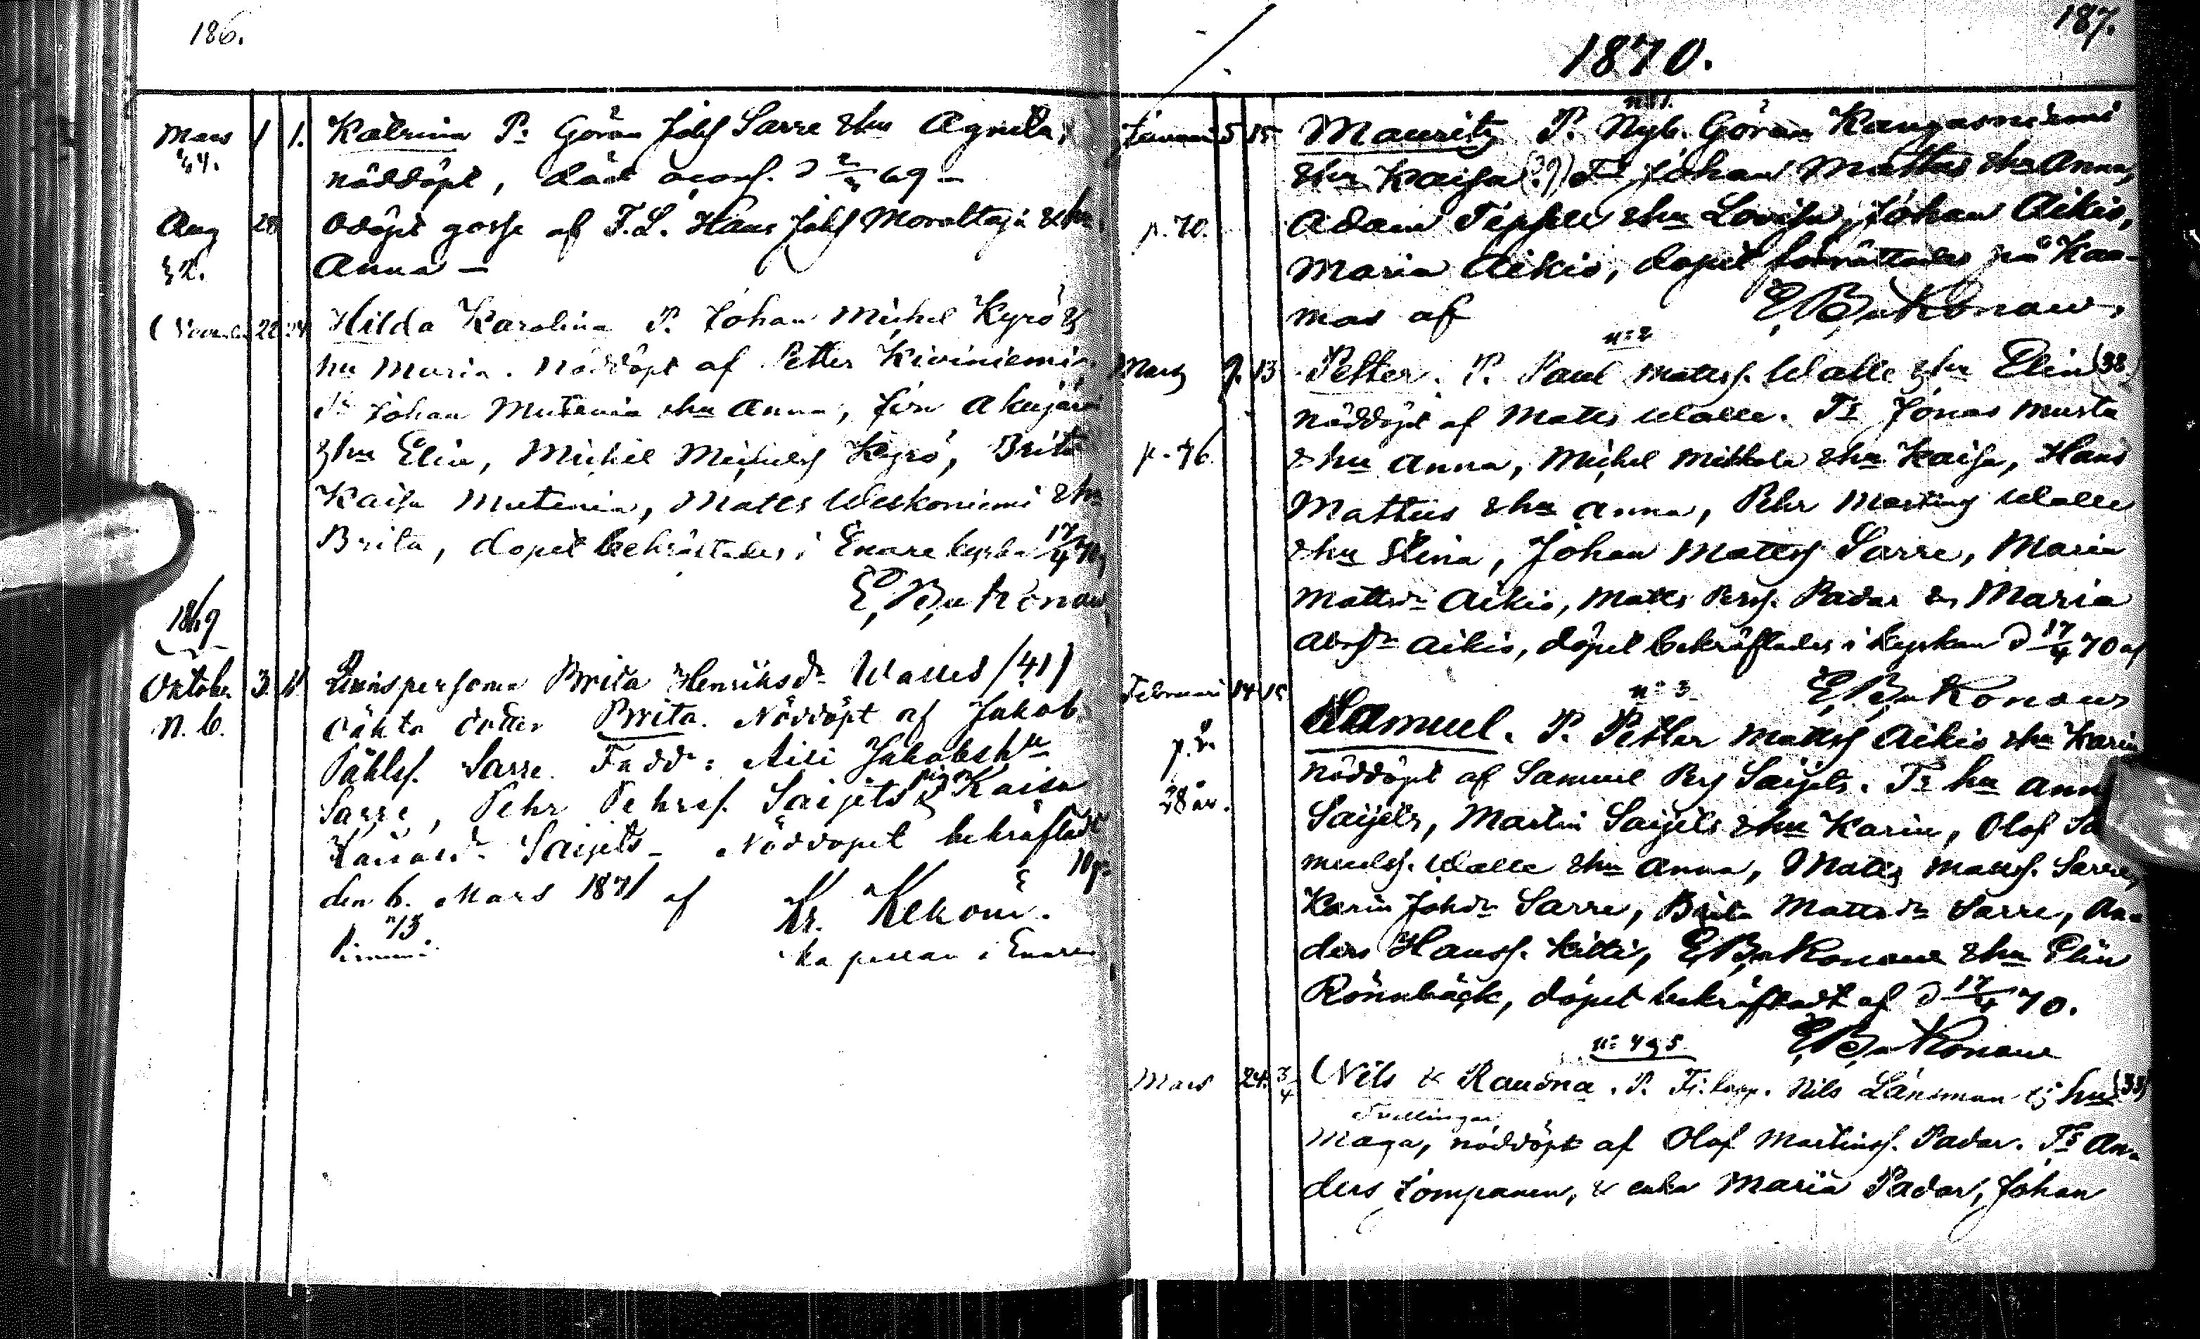 186.
Mars 1 1. Katrina P: Göran Johss Sarre & hu Agneta,
44. nöddöpt, död d 69 —
Aug 28 Odöpt gosse af F.L. Hans Johss Morottaja & hu
32. Anna —
22 24 Hilda Karolina P. Johan Michel Kyrö &
hu Maria. Nöddöpt af Petter Kiviniemi,
Fr Johan Mutenia & hu Anna, Akujärvi
& hu Elin, Michel Michelss Kyrö, Brita
Kaisa Mutenia, Matts Weskoniemi & hu
Brita, dopet bekräftades i Enare kyrka 17/4 70
E,B,von Konow
1869
Oktober 3. Qvinspersonen Brita Henriksdr Walles (41)
n. 6. oäkta dotter Brita. Nöddöpt af Jakob
Påhlss. Sarre. Fadd: Aili Jakobs hu
Sarre, Pehr Pehrss. Saijets & pig. Kaisa
Saijets — Nöddopet bekräftadt
den 6. Mars 1871 af
Kr. Kekoni.
n 13
kapellan i Enare
187.
1870.
n: 1.
Januari 5 15 Mauritz P. Nyb. Göran Kangasniemi
& hu Kaisa (39) Fr Johan Mattus & hu Anna,
p. 70. Adam Teppu & hu Lovisa, Johan Aikio,
Maria Aikio, dopet förrättades på Kaa-
mas af E,B,von Konow,
n: 2
Mars 9. 13 Petter. P. Paul Mattss. Walle & hu Elin (38)
nöddöpt af Matts Walle. Fr Jonas Musta
p. 46. & hu Anna, Michel Mikkola & hu Kaisa, Hans
Mattus & hu Anna, Pehr Martinss Walle
& hu Stina, Johan Mattss Sarre, Maria
Mattsdr Aikio, Matts Perss. Padar & Maria
Abrdr Aikio, döpet bekräftades i kyrkan d 17/4 70 af
n: 3 E,B,von Konow
Februari 14 15 Samuel. P. Petter Mattss Aikio & hu Karin
p. 2. nöddöpt af Samuel Perss Saijets. Fr hu Anna
28 år. Saijets, Martin Saijets & hu Karin, Olof Sa
muelss. Walle & hu Anna, Matts Mattss. Sarre,
Karin Johdr Sarre, Brita Mattsdr Sarre, An-
ders Hanss. Kitti, E,B,von Konow & hu Elin
Rönnbäck, döpet bekräftadt af d 17/4 70.
n: 4 & 5 E,B,von Konow
Mars 24. 3/4 Nils & Raudna. P. Fi. lapp. Nils Länsman & hu (33)
Tvillingar
Maga, nöddöpt af Olof Martinss. Padar. Fr An-
ders Jomppanen, & enka Maria Padar, Johan